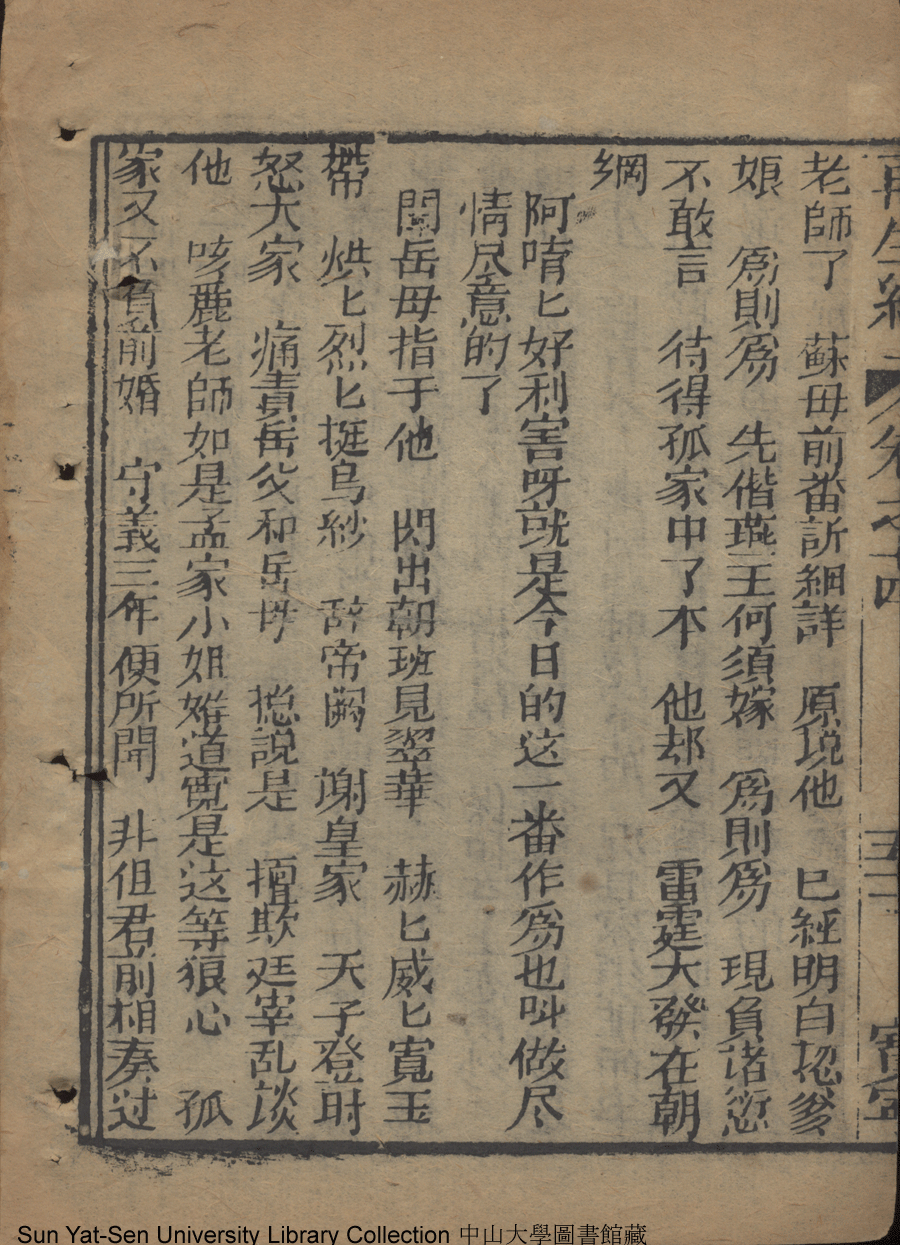 再生緣 卷之十四 五十二 寧
老師了 蘇母前番訴細詳 原说他 已經明白認爹
娘 爲則爲 先偕燕王何須嫁 爲則爲 現負诸愆
不敢言 待得孤家中了本 他却又 雷霆大發在朝
綱
阿唷匕好利害呀就是今日的这一番作爲也叫做尽
情尽意的了
闖岳母指于他 閃出朝班見翠華 赫匕威匕寬玉
帶 烘匕烈匕挺烏紗 辞帝阙 謝皇家 天子登时
怒大家 痛責岳父和岳母 捴說是 擅欺廷宰乱談
他 咳麗老師如是孟家小姐难道寛是这等狠心 孤
家又不負前婚 守義三年便所聞 非但君前相奏过
Sun Yat-Sen University Library Collection 中山大學圖書館藏